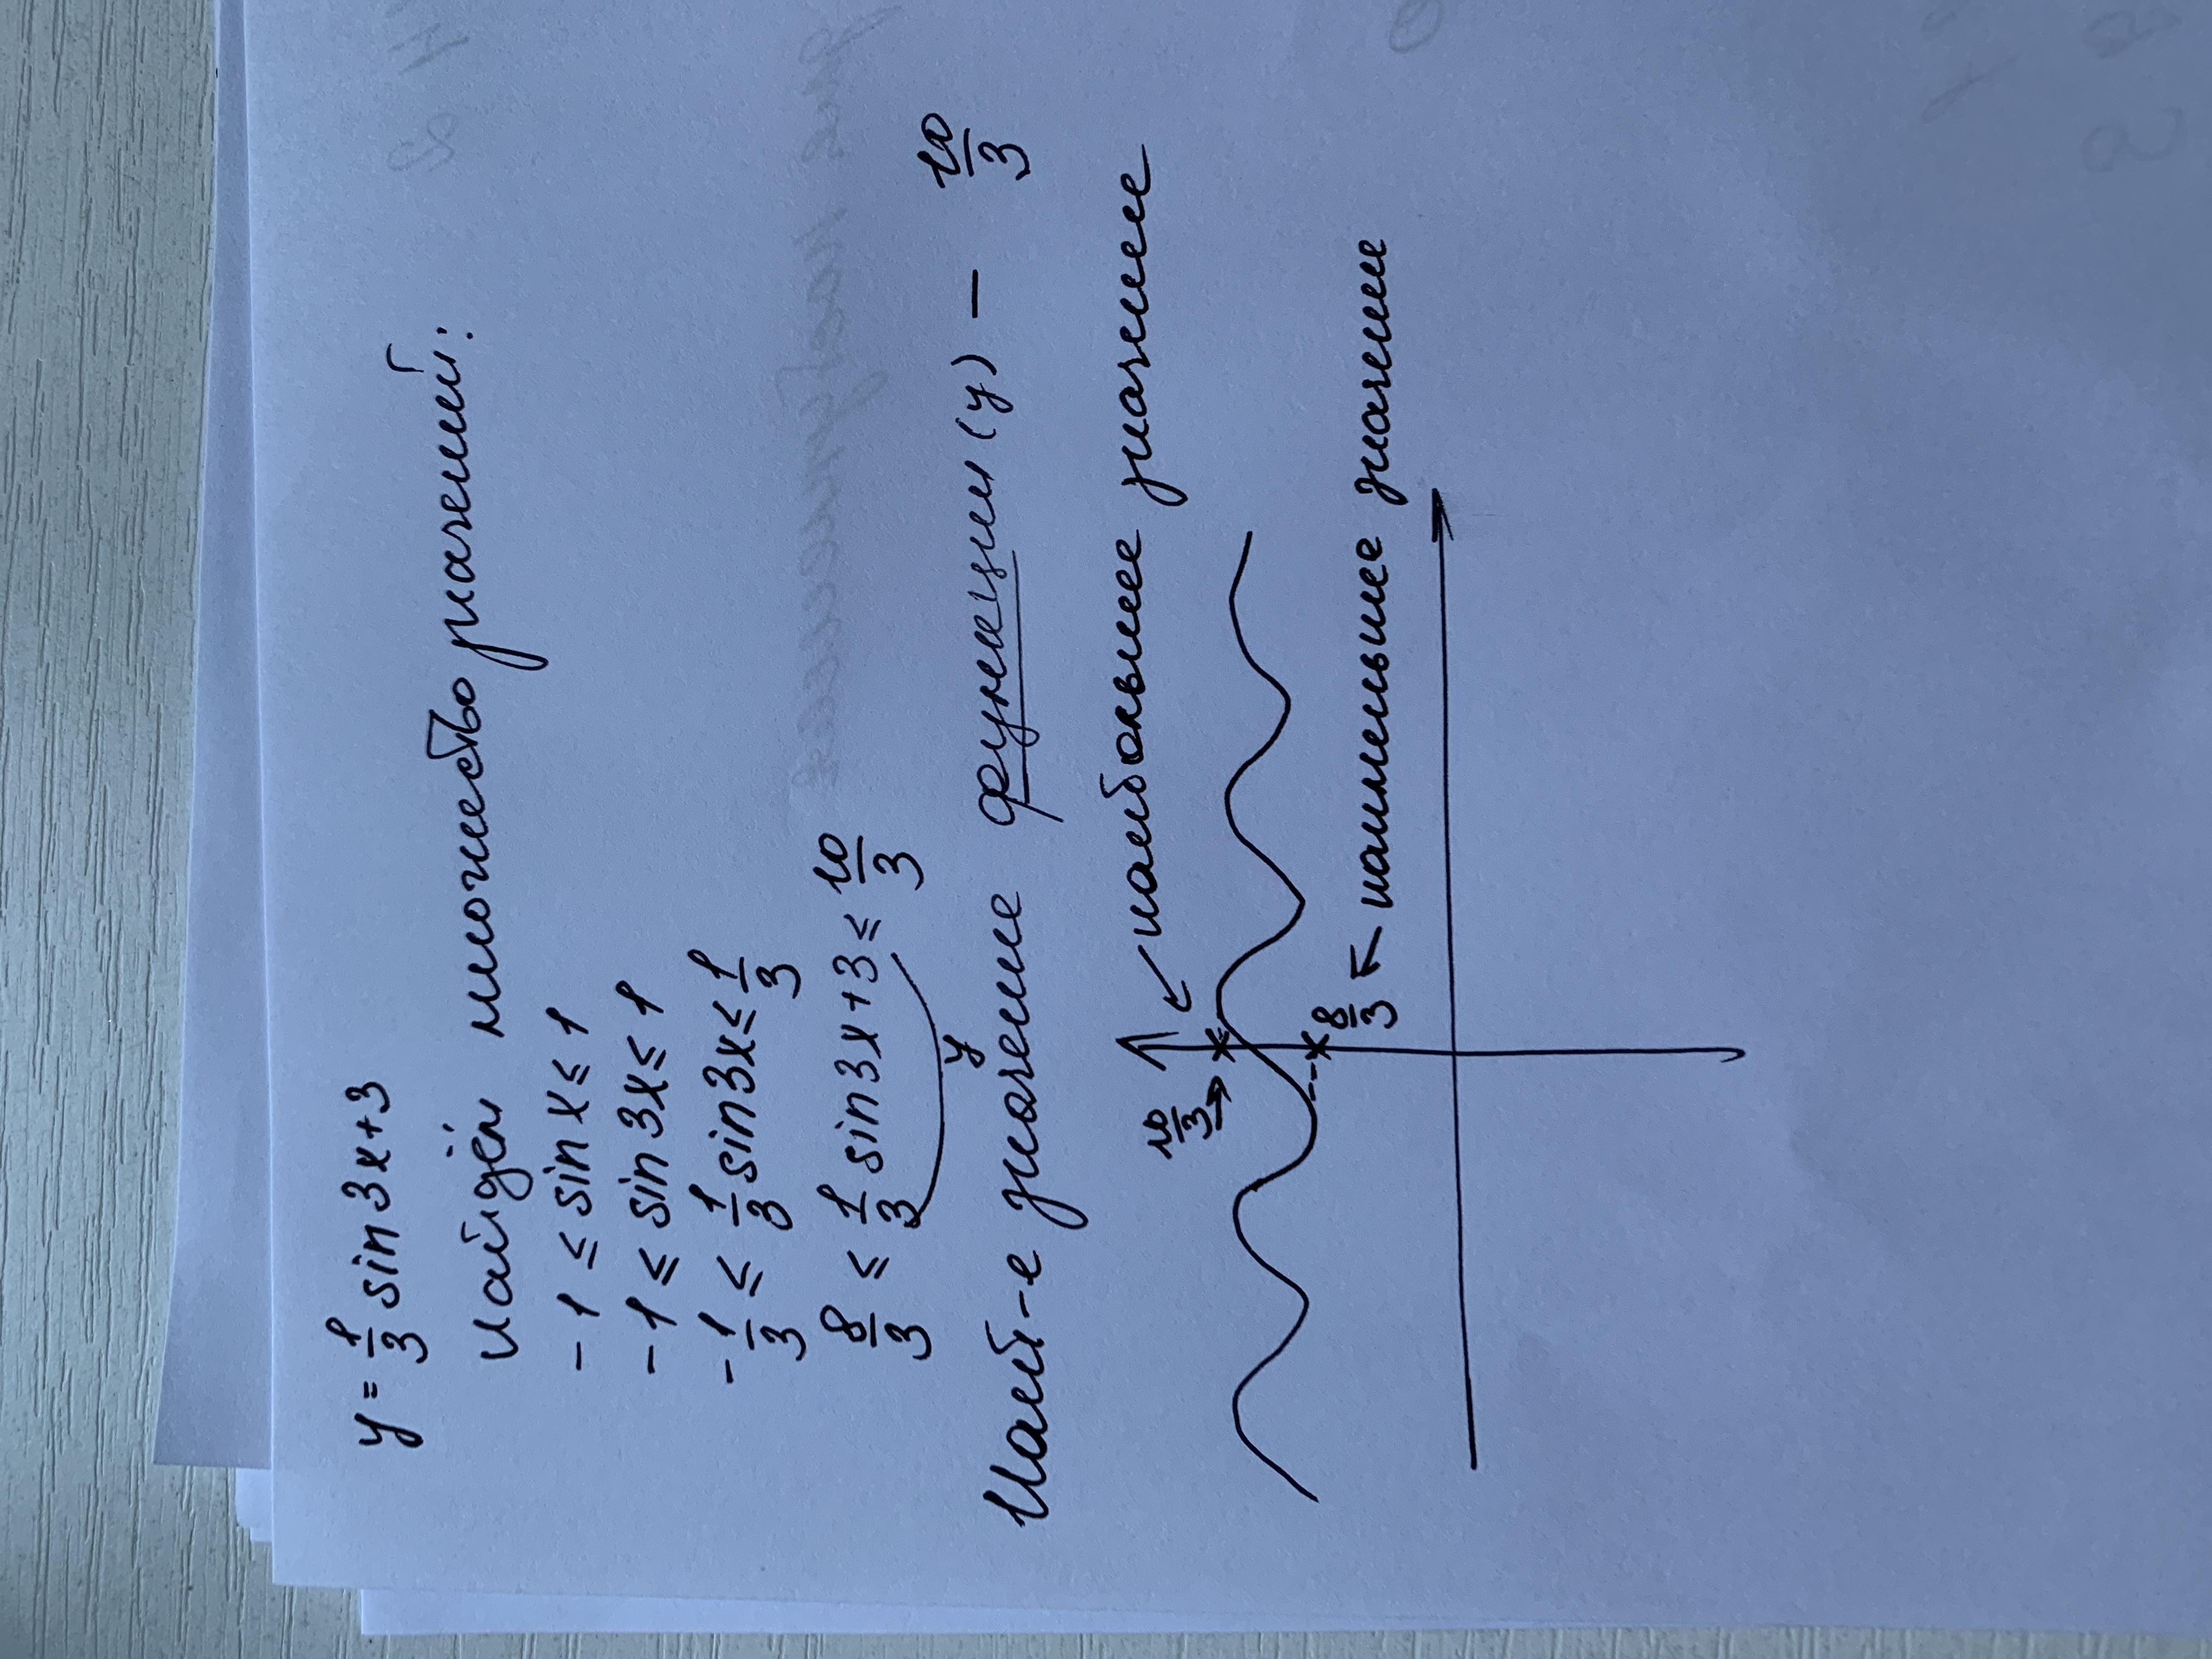 y = 1/3 sin 3x + 3
Найдём множество значений:
-1 ≤ sin x ≤ 1
-1 ≤ sin 3x ≤ 1
-1/3 ≤ 1/3 sin 3x ≤ 1/3
8/3 ≤ 1/3 sin 3x + 3 ≤ 10/3
y
Наиб-е значение функции (y) — 10/3
наибольшее значение
10/3
8/3 ← наименьшее значение